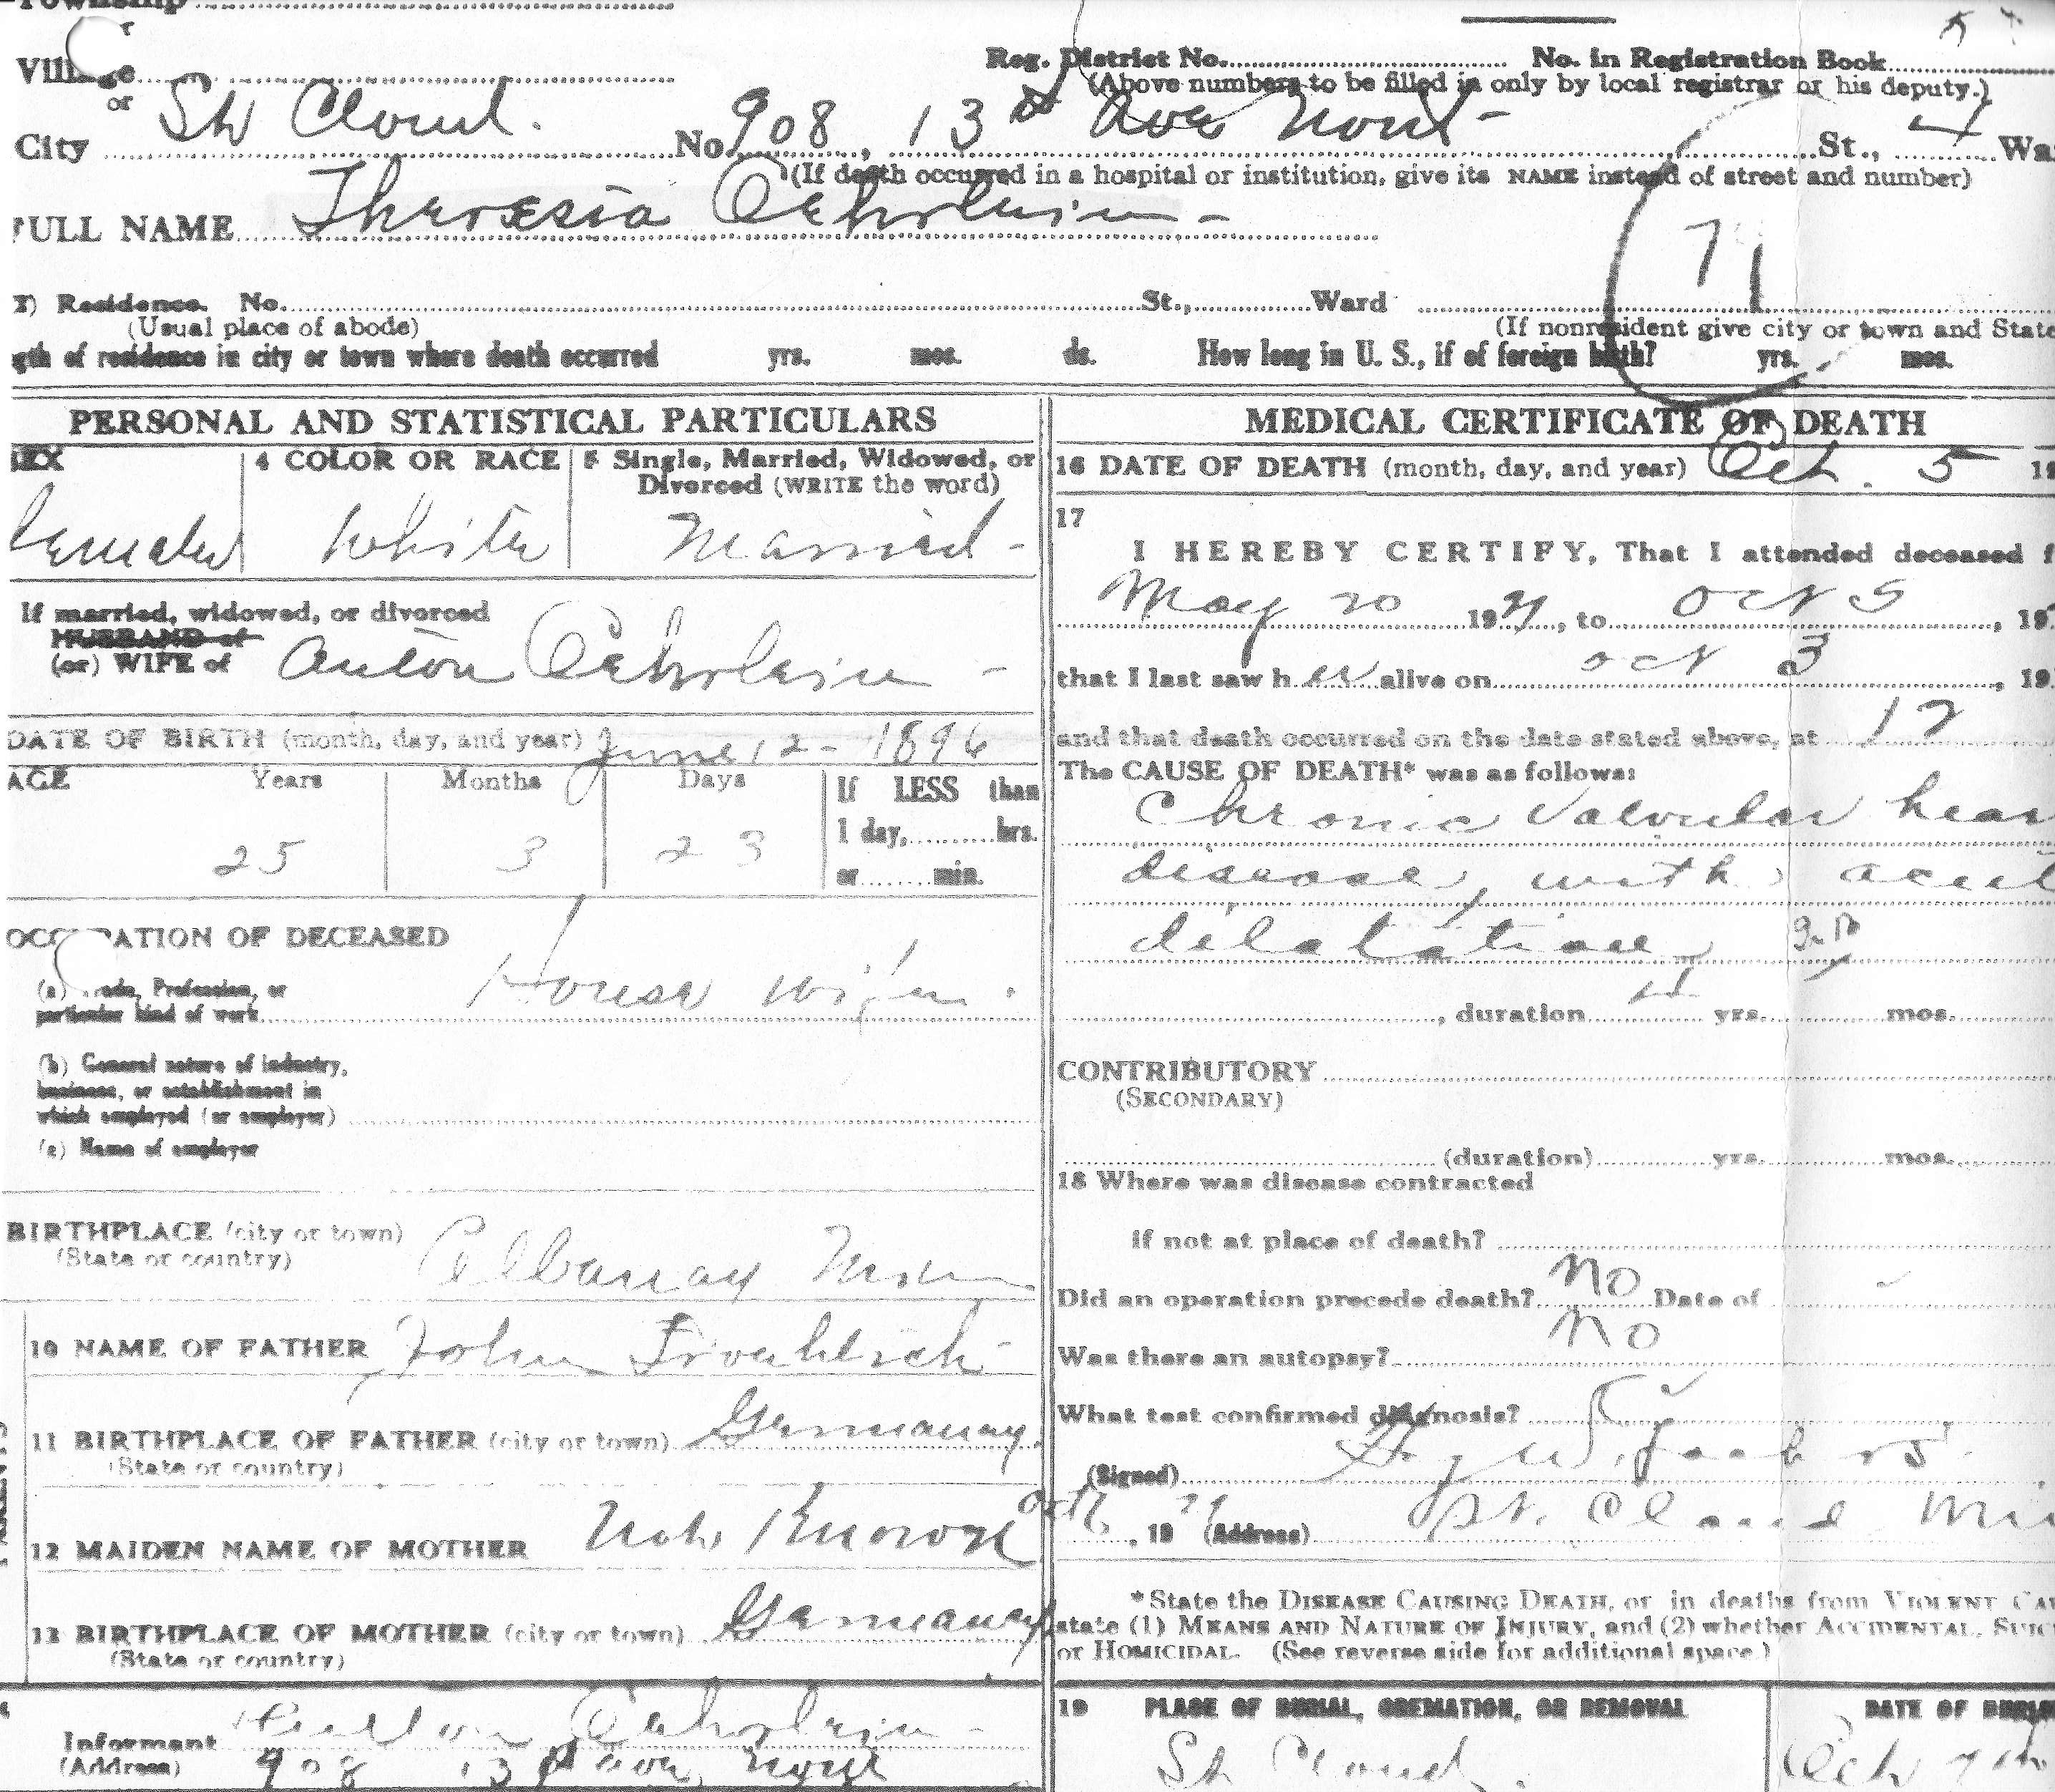 Township
or
Village
or
Reg. District No. No. in Registration Book
(Above numbers to be filled in only by local registrar or his deputy.)
City St Cloud. No 908, 13th Ave North St., 4 Wa
(If death occurred in a hospital or institution, give its NAME instead of street and number)
FULL NAME Theresia
71
Residence. No. St., Ward
(Usual place of abode) (If nonresident give city or town and State
gth of residence in city or town where death occurred yrs. mos. ds. How long in U. S., if of foreign birth? yrs. mos.
PERSONAL AND STATISTICAL PARTICULARS
SEX 4 COLOR OR RACE 5 Single, Married, Widowed, or
Divorced (WRITE the word)
Female White Married -
If married, widowed, or divorced
HUSBAND of
(or) WIFE of Anton
DATE OF BIRTH (month, day, and year) June 12 - 1896
AGE Years Months Days If LESS than
1 day, hrs.
or min.
25 3 23
OCCUPATION OF DECEASED
(a) Trade, Profession, or
particular kind of work House wife.
(b) General nature of industry,
business, or establishment in
which employed (or employer)
(c) Name of employer
BIRTHPLACE (city or town)
(State or country) Albany Minn
10 NAME OF FATHER John Froehlich
11 BIRTHPLACE OF FATHER (city or town) Germany.
(State or country)
12 MAIDEN NAME OF MOTHER Not Known
13 BIRTHPLACE OF MOTHER (city or town) Germany
(State or country)
PARENTS
Informant Anton
(Address) 908 13th ave North
MEDICAL CERTIFICATE OF DEATH
16 DATE OF DEATH (month, day, and year) Oct. 5 19
17
I HEREBY CERTIFY, That I attended deceased f
May 20 1921, to Oct 5, 19
that I last saw her alive on Oct 3, 19
and that death occurred on the date stated above, at 12
The CAUSE OF DEATH* was as follows:
Chronic Valvular hear
disease, with acut
dilatation
, duration yrs. mos.
CONTRIBUTORY
(SECONDARY)
(duration) yrs. mos.
18 Where was disease contracted
if not at place of death?
Did an operation precede death? No Date of
Was there an autopsy? No
What test confirmed diagnosis?
(Signed)
Oct 6, 19 21 (Address) St. Cloud Mi
*State the DISEASE CAUSING DEATH, or in deaths from VIOLENT CA
state (1) MEANS AND NATURE OF INJURY, and (2) whether ACCIDENTAL, SUIC
or HOMICIDAL. (See reverse side for additional space.)
19 PLACE OF BURIAL, CREMATION, OR REMOVAL DATE OF BURIAL
St Cloud. Oct 7th